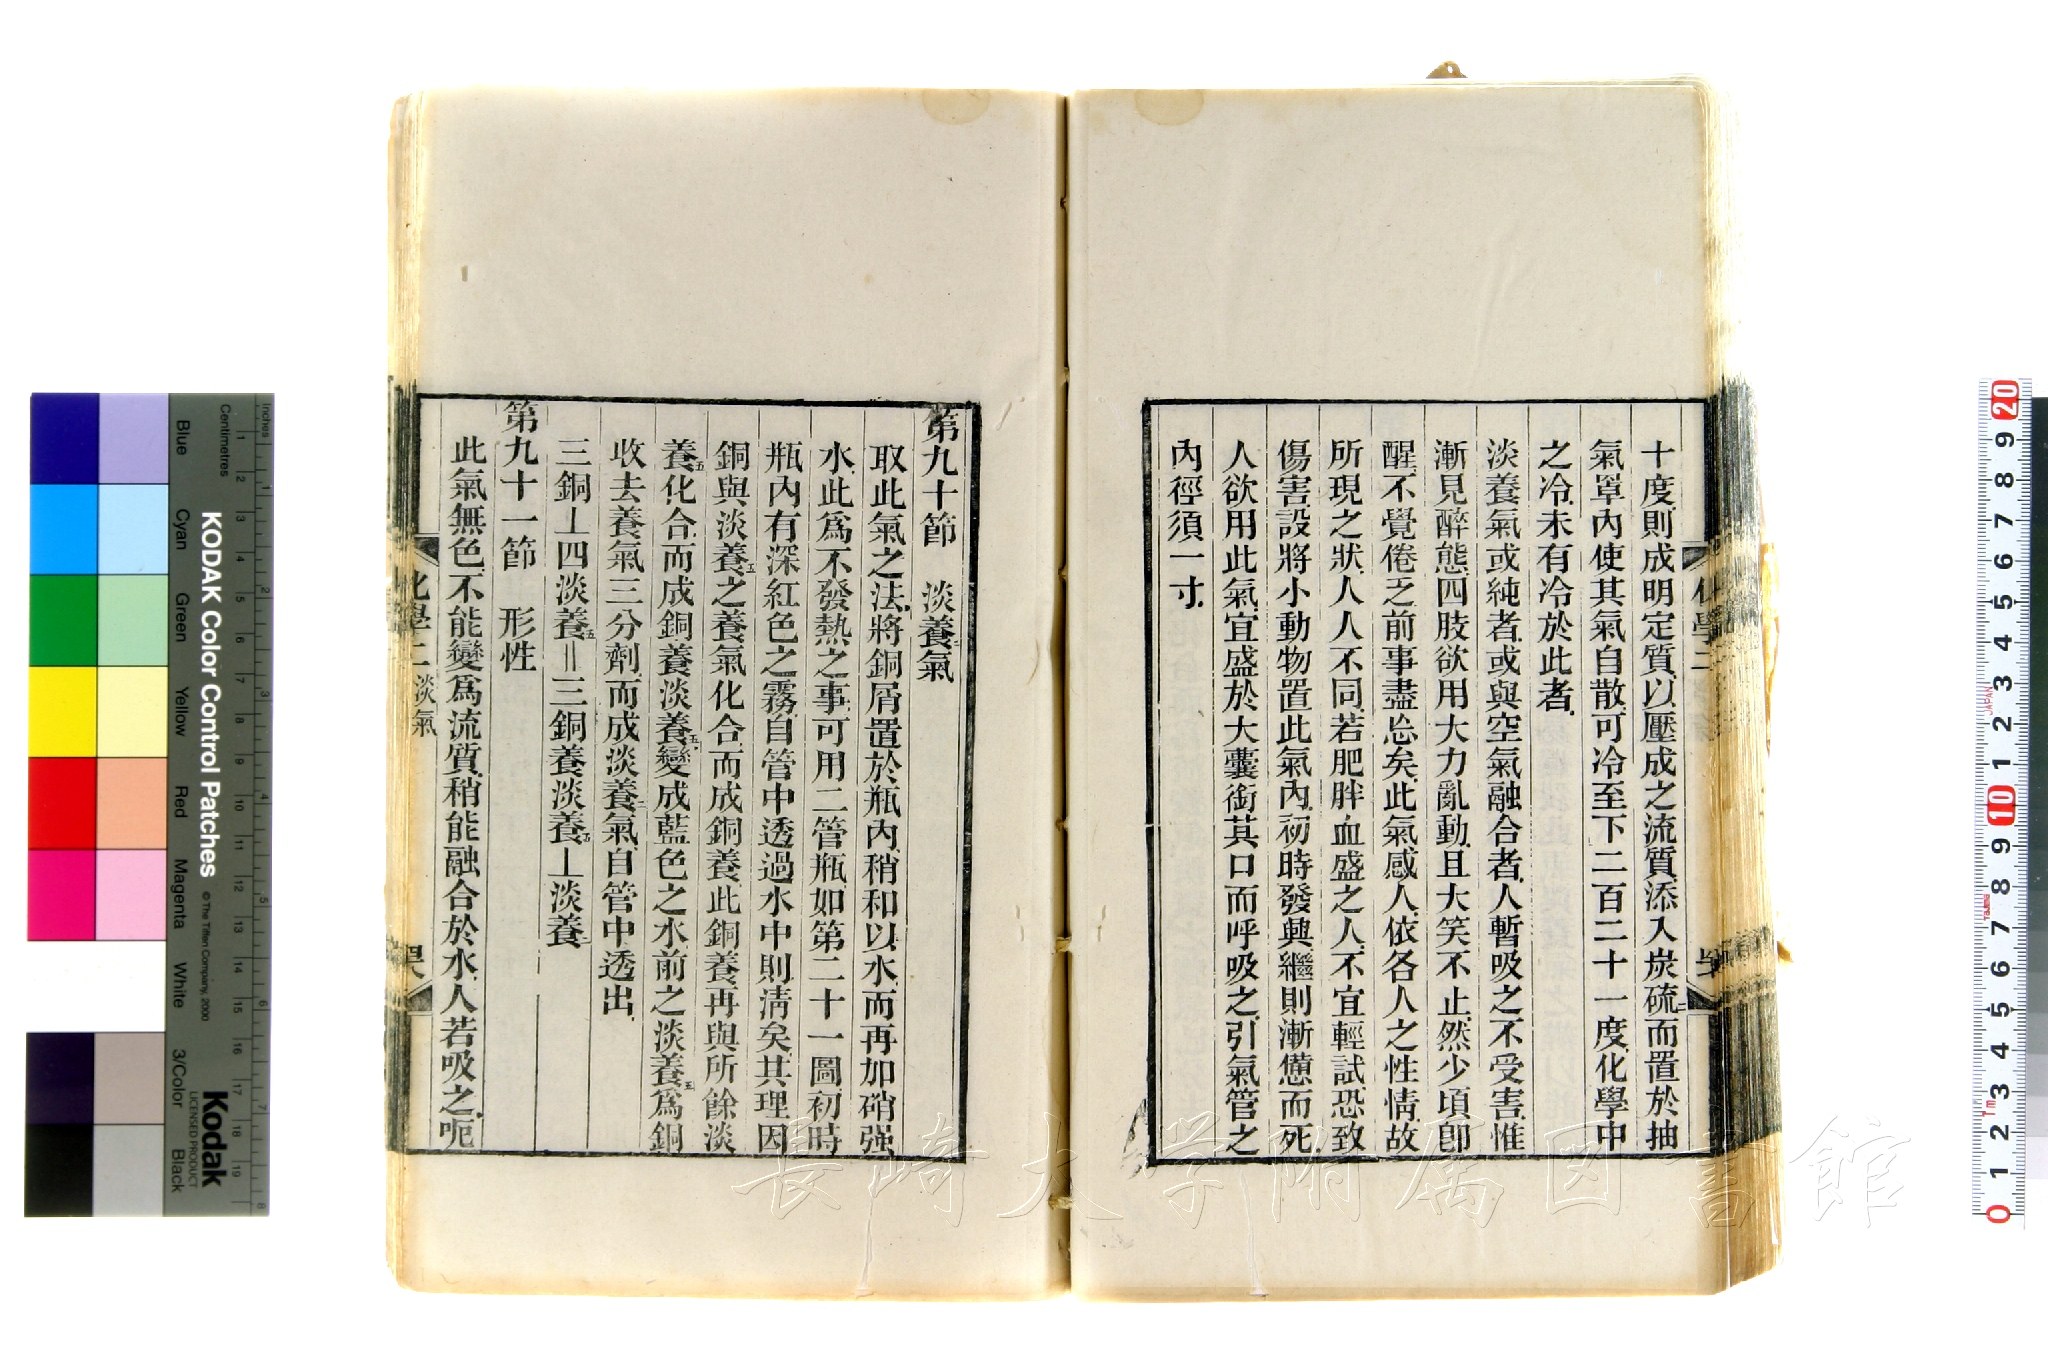 十度則成明定質以壓成之流質添入炭硫二而置於抽
氣罩內使其氣自散可冷至下二百二十一度化學中
之冷未有冷於此者
淡養氣或純者或與空氣融合者人暫吸之不受害惟
漸見醉態四肢欲用大力亂動且大笑不止然少頃卽
醒不覺倦乏前事盡忘矣此氣感人依各人之性情故
所現之狀人人不同若肥胖血盛之人不宜輕試恐致
傷害設將小動物置此氣內初時發興繼則漸憊而死
人欲用此氣宜盛於大囊銜其口而呼吸之引氣管之
內徑須一寸
第九十節 淡養二氣
取此氣之法將銅屑置於瓶內稍和以水而再加硝强
水此爲不發熱之事可用二管瓶如第二十一圖初時
瓶內有深紅色之霧自管中透過水中則淸矣其理因
銅與淡養五之養氣化合而成銅養此銅養再與所餘淡
養五化合而成銅養淡養五變成藍色之水前之淡養五爲銅
收去養氣三分劑而成淡養二氣自管中透出
三銅⊥四淡養五＝三銅養淡養五⊥淡養二
第九十一節 形性
此氣無色不能變爲流質稍能融合於水人若吸之呃
化學二 淡氣
化學二
長崎大学附属図書館
KODAK Color Control Patches
© The Tiffen Company, 2000
Kodak
LICENSED PRODUCT
Inches
Centimetres
Blue
Cyan
Green
Yellow
Red
Magenta
White
3/Color
Black